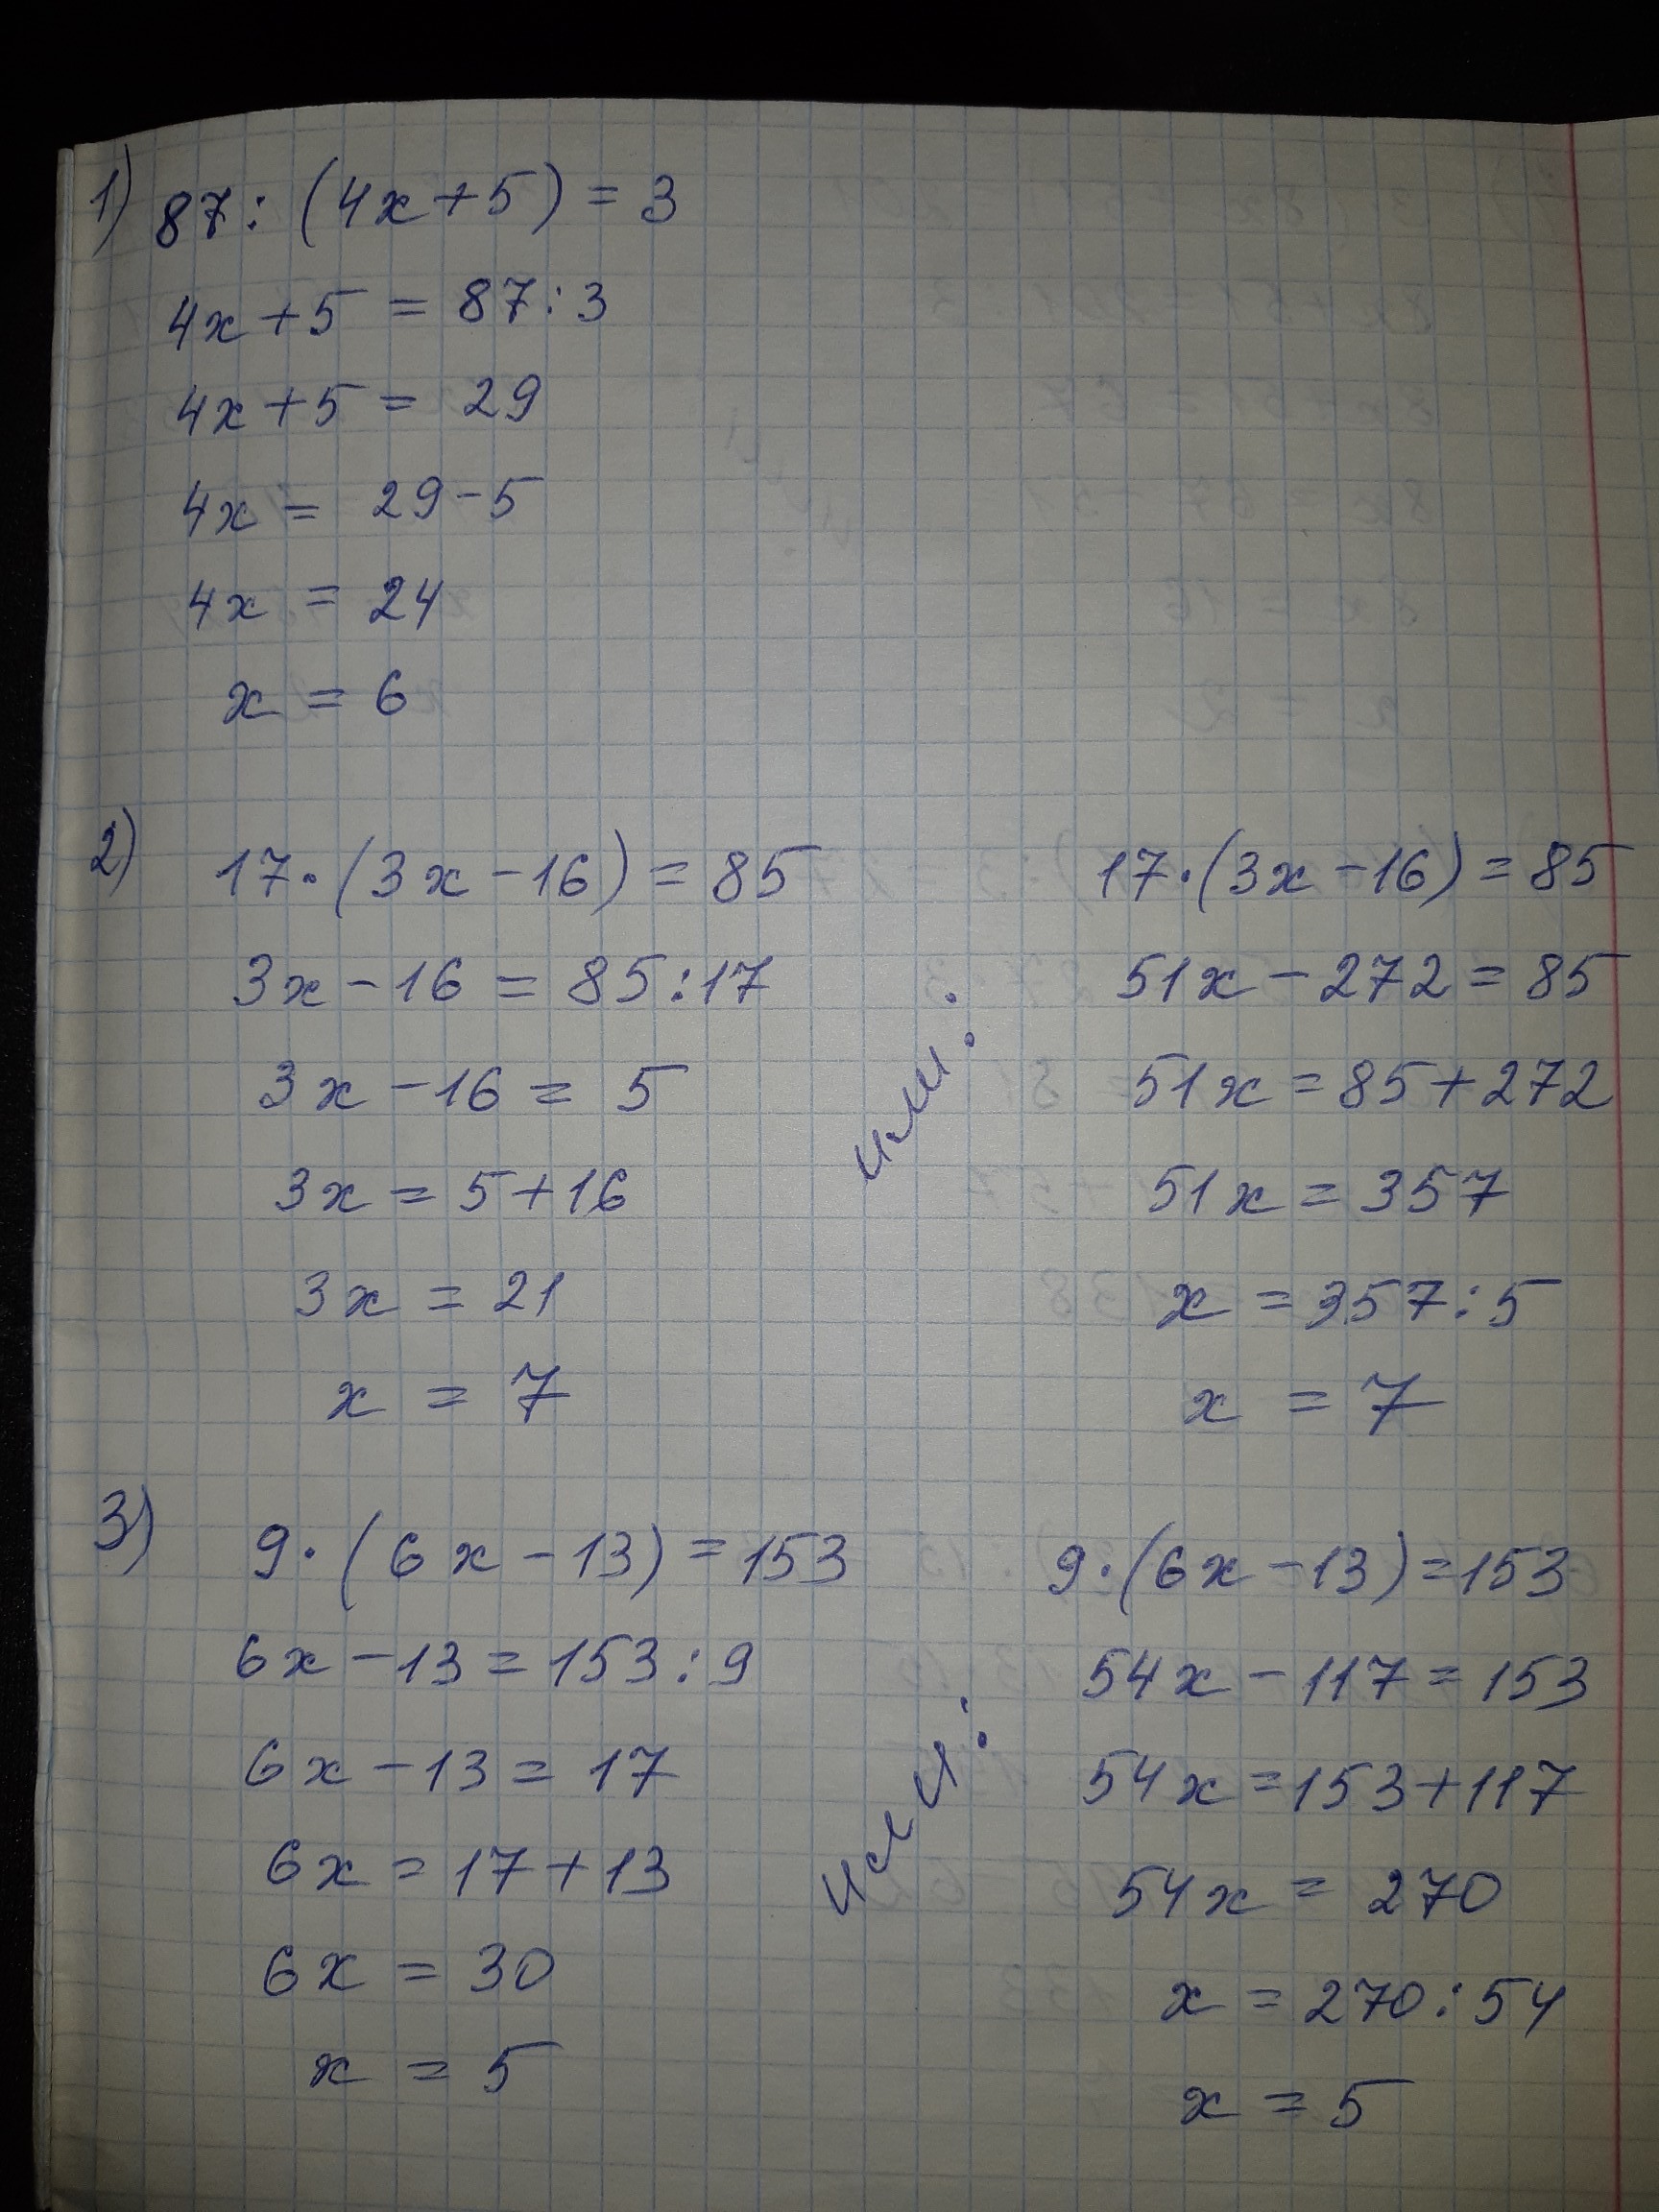 1) 87 : (4x + 5) = 3
4x + 5 = 87 : 3
4x + 5 = 29
4x = 29 - 5
4x = 24
x = 6
2) 17 · (3x - 16) = 85
3x - 16 = 85 : 17
3x - 16 = 5
3x = 5 + 16
3x = 21
x = 7
или:
17 · (3x - 16) = 85
51x - 272 = 85
51x = 85 + 272
51x = 357
x = 357 : 5
x = 7
3) 9 · (6x - 13) = 153
6x - 13 = 153 : 9
6x - 13 = 17
6x = 17 + 13
6x = 30
x = 5
или:
9 · (6x - 13) = 153
54x - 117 = 153
54x = 153 + 117
54x = 270
x = 270 : 54
x = 5